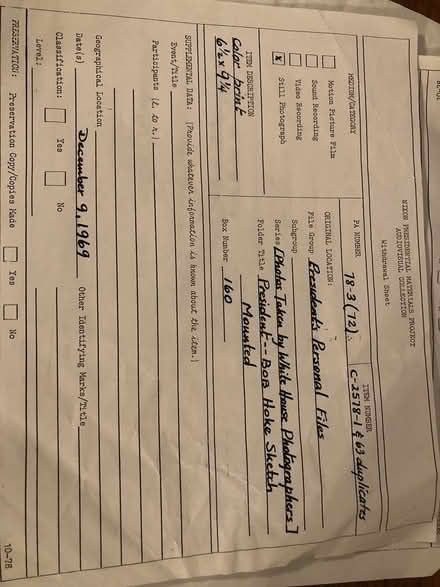 NIXON PRESIDENTIAL MATERIALS PROJECT
AUDIOVISUAL COLLECTION
Withdrawal Sheet
MEDIUM/CATEGORY
Motion Picture Film
Sound Recording
Video Recording
x Still Photograph
PA NUMBER
78-3(72)
ITEM NUMBER
C-2578-1 & 63 duplicates
ORIGINAL LOCATION:
File Group President's Personal Files
Subgroup
Series [Photos Taken by White House Photographers]
Folder Title President -- Bob Hoke Sketch
Mounted
Box Number 160
ITEM DESCRIPTION
Color print
6½ x 9¼
SUPPLEMENTAL DATA: (Provide whatever information is known about the item.)
Event/Title
Participants (L. to R.)
Geographical Location
Date(s) December 9, 1969 Other Identifying Marks/Title
Classification: Yes No
Level:
PRESERVATION: Preservation Copy/Copies Made Yes No
10-78